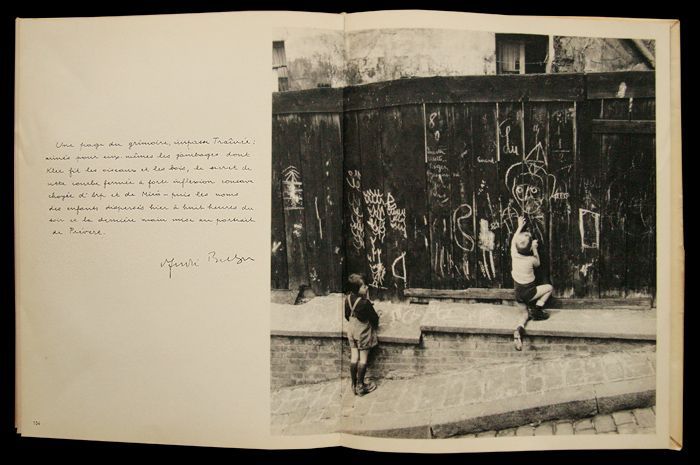 Une page du grimoire, impasse Traînée :
mimés pour eux-mêmes les jambages dont
Klee fit les oiseaux et les bois, le secret de
cette courbe fermée à forte inflexion concave
choyée d'Arp et de Miró – puis les noms
des enfants dispersés hier à huit heures du
soir et la dernière main mise au portrait
de Prévert.
André Breton
134
8